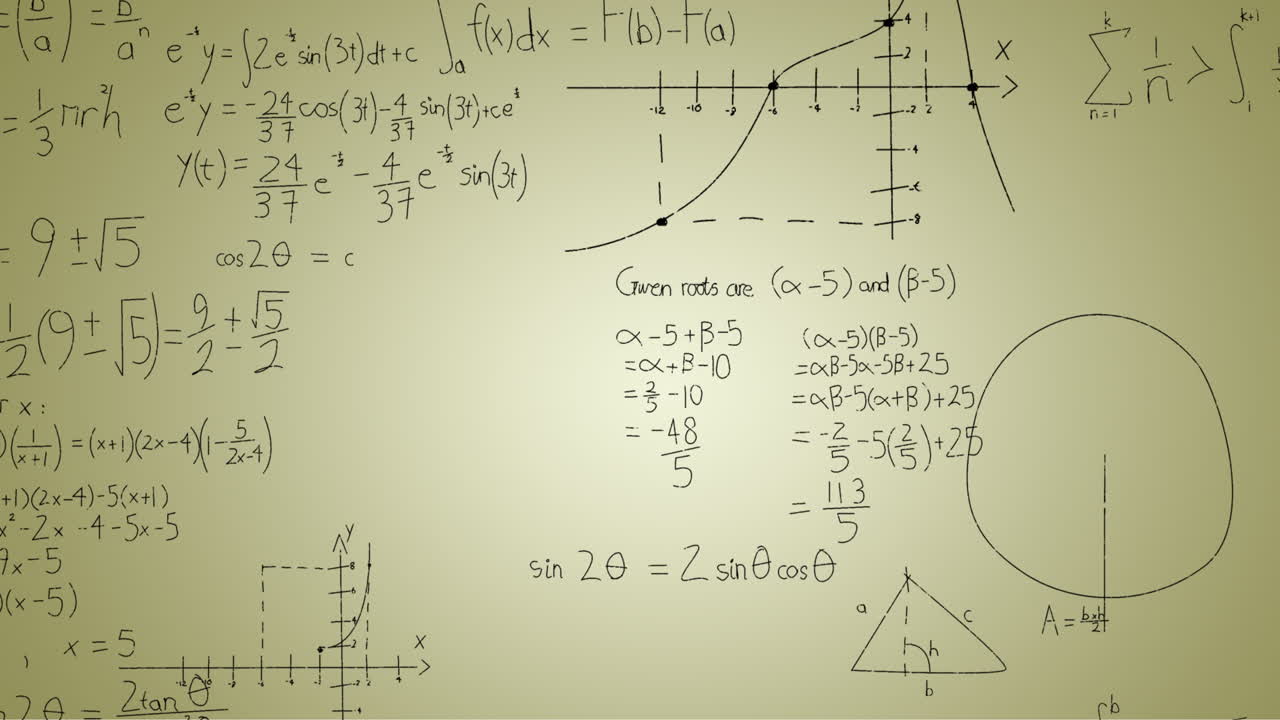 = (b/a) = b/aⁿ
e^(-t/2) y = ∫2e^(-t/2) sin(3t)dt+c
e^(-t/2) y = -24/37 cos(3t) - 4/37 sin(3t)+ce^t
Y(t) = 24/37 e^(-t/2) - 4/37 e^(-t/2) sin(3t)
= 1/3 πr²h
= 9 ± √5
cos2θ = c
1/2 (9 ± √5) = 9/2 ± √5/2
r x :
)(1/(x+1)) = (x+1)(2x-4)(1-5/(2x-4))
+1)(2x-4)-5(x+1)
x²-2x -4-5x-5
9x-5
)(x-5)
, x = 5
2θ = 2tanθ
∫a f(x)dx = F(b)-F(a)
X
4
2
-12 -10 -8 -6 -4 -2 2 4
-2
-4
-6
-8
k Σ n=1 1/n > ∫ k+1 1
Given roots are (α-5) and (β-5)
α-5+β-5
=α+β-10
= 2/5 -10
= -48/5
(α-5)(β-5)
=αβ-5α-5β+25
=αβ-5(α+β)+25
= -2/5 -5(2/5)+25
= 113/5
sin 2θ = 2 sinθ cosθ
a
c
h
b
A = bxh/2
∫b
Y
8
6
4
2
X
2 4
-4